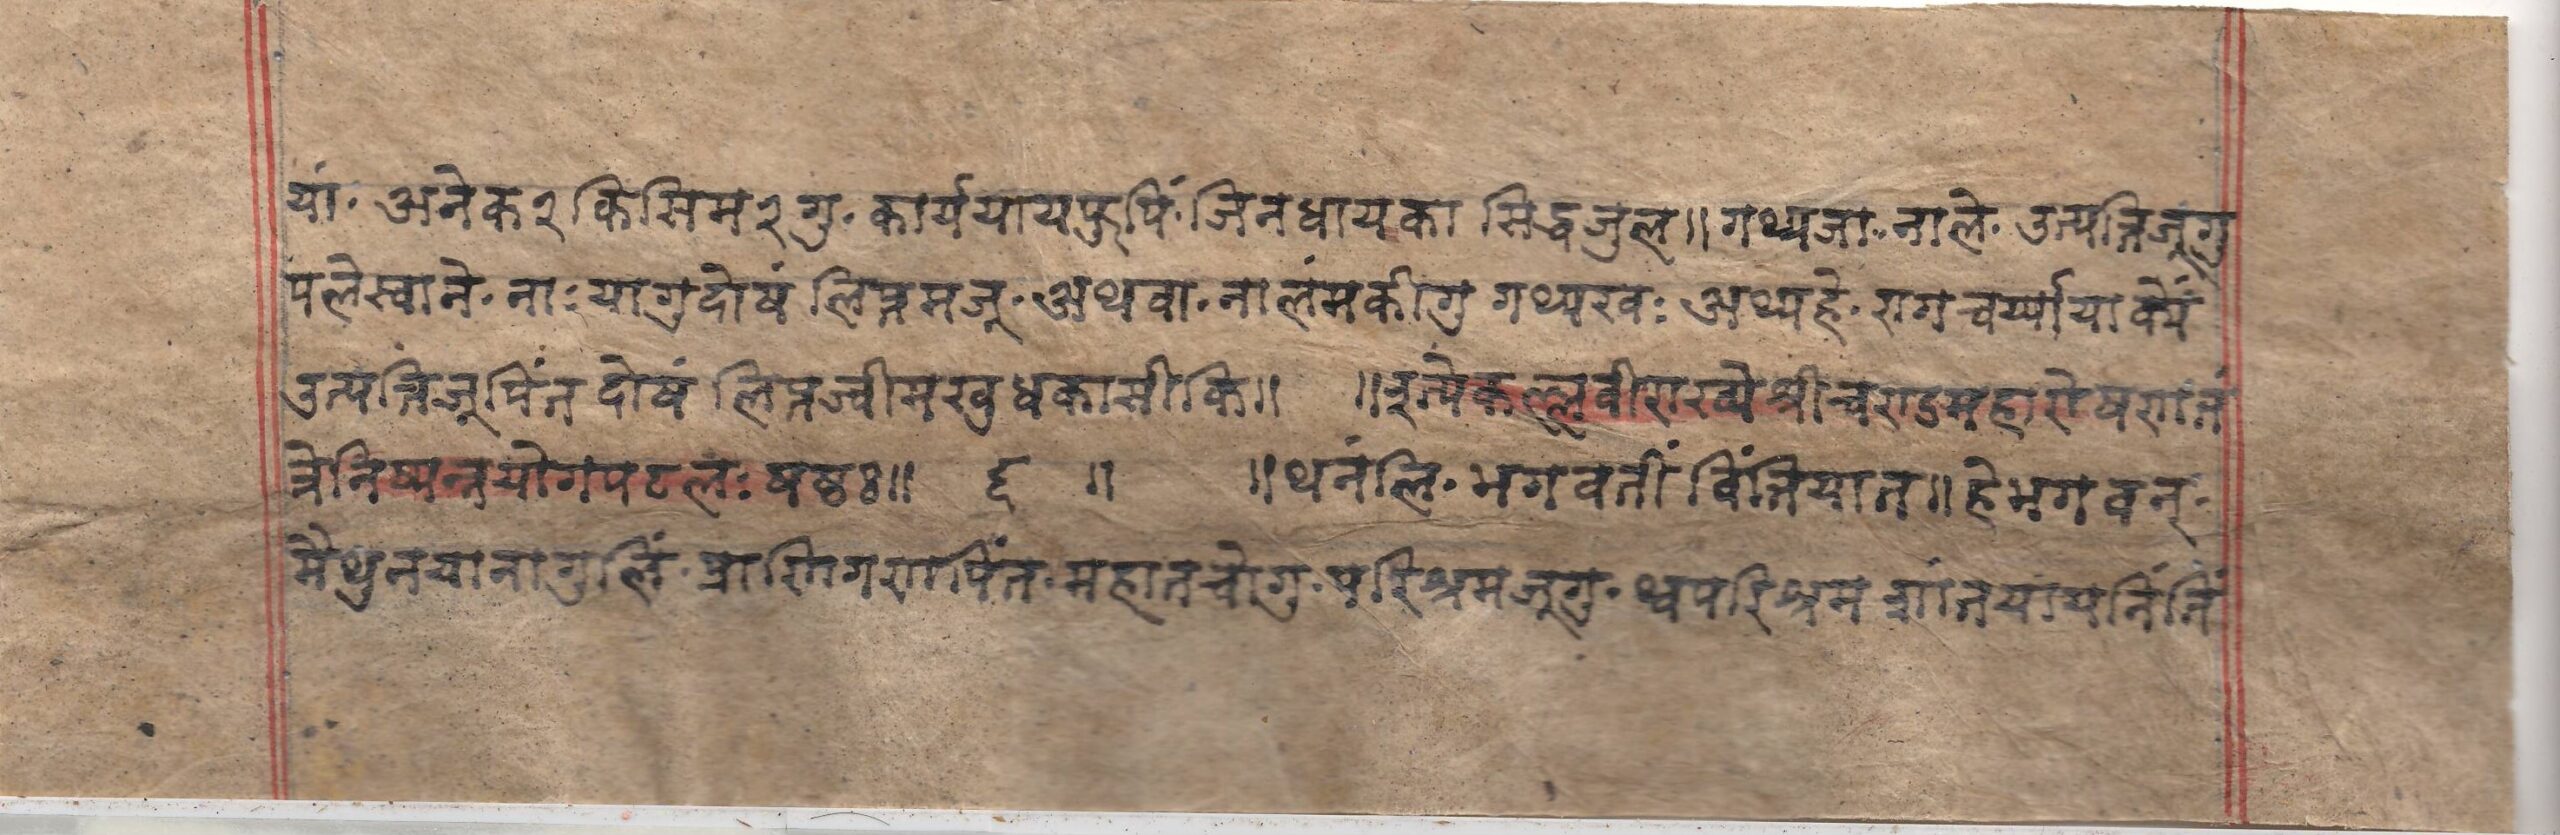 यां॰ अनेक२ किसिम२गु॰ कार्ययायफुपिं॰ जिनधायका सिद्धजुल॥ गथ्यजा॰ नाले॰ उत्पत्तिजूगु
पलेस्वाने॰ नाःयागुदोषं लिप्तमजू॰ अथवा॰ नालंमकीगु गथ्यखवः अथ्यहे॰ रागचर्य्यायाकेयं
उत्पत्तिजूपिंत दोषं लिप्तज्वीमखु धकासीकि॥ ॥इत्येकल्लवीराख्येश्रीचण्डमहारोषणतं
त्रेनिष्पन्नयोगपटलः षष्ठः॥ ६ ॥ ॥थनंलि॰ भगवतीं विंतियात॥ हेभगवन्॰
मैथुनयानागुलिं॰ प्राणिगणपिंत॰ महानचोगु॰ परिश्रमजूगु॰ थ्वपरिश्रम शांतयायनिंतिं